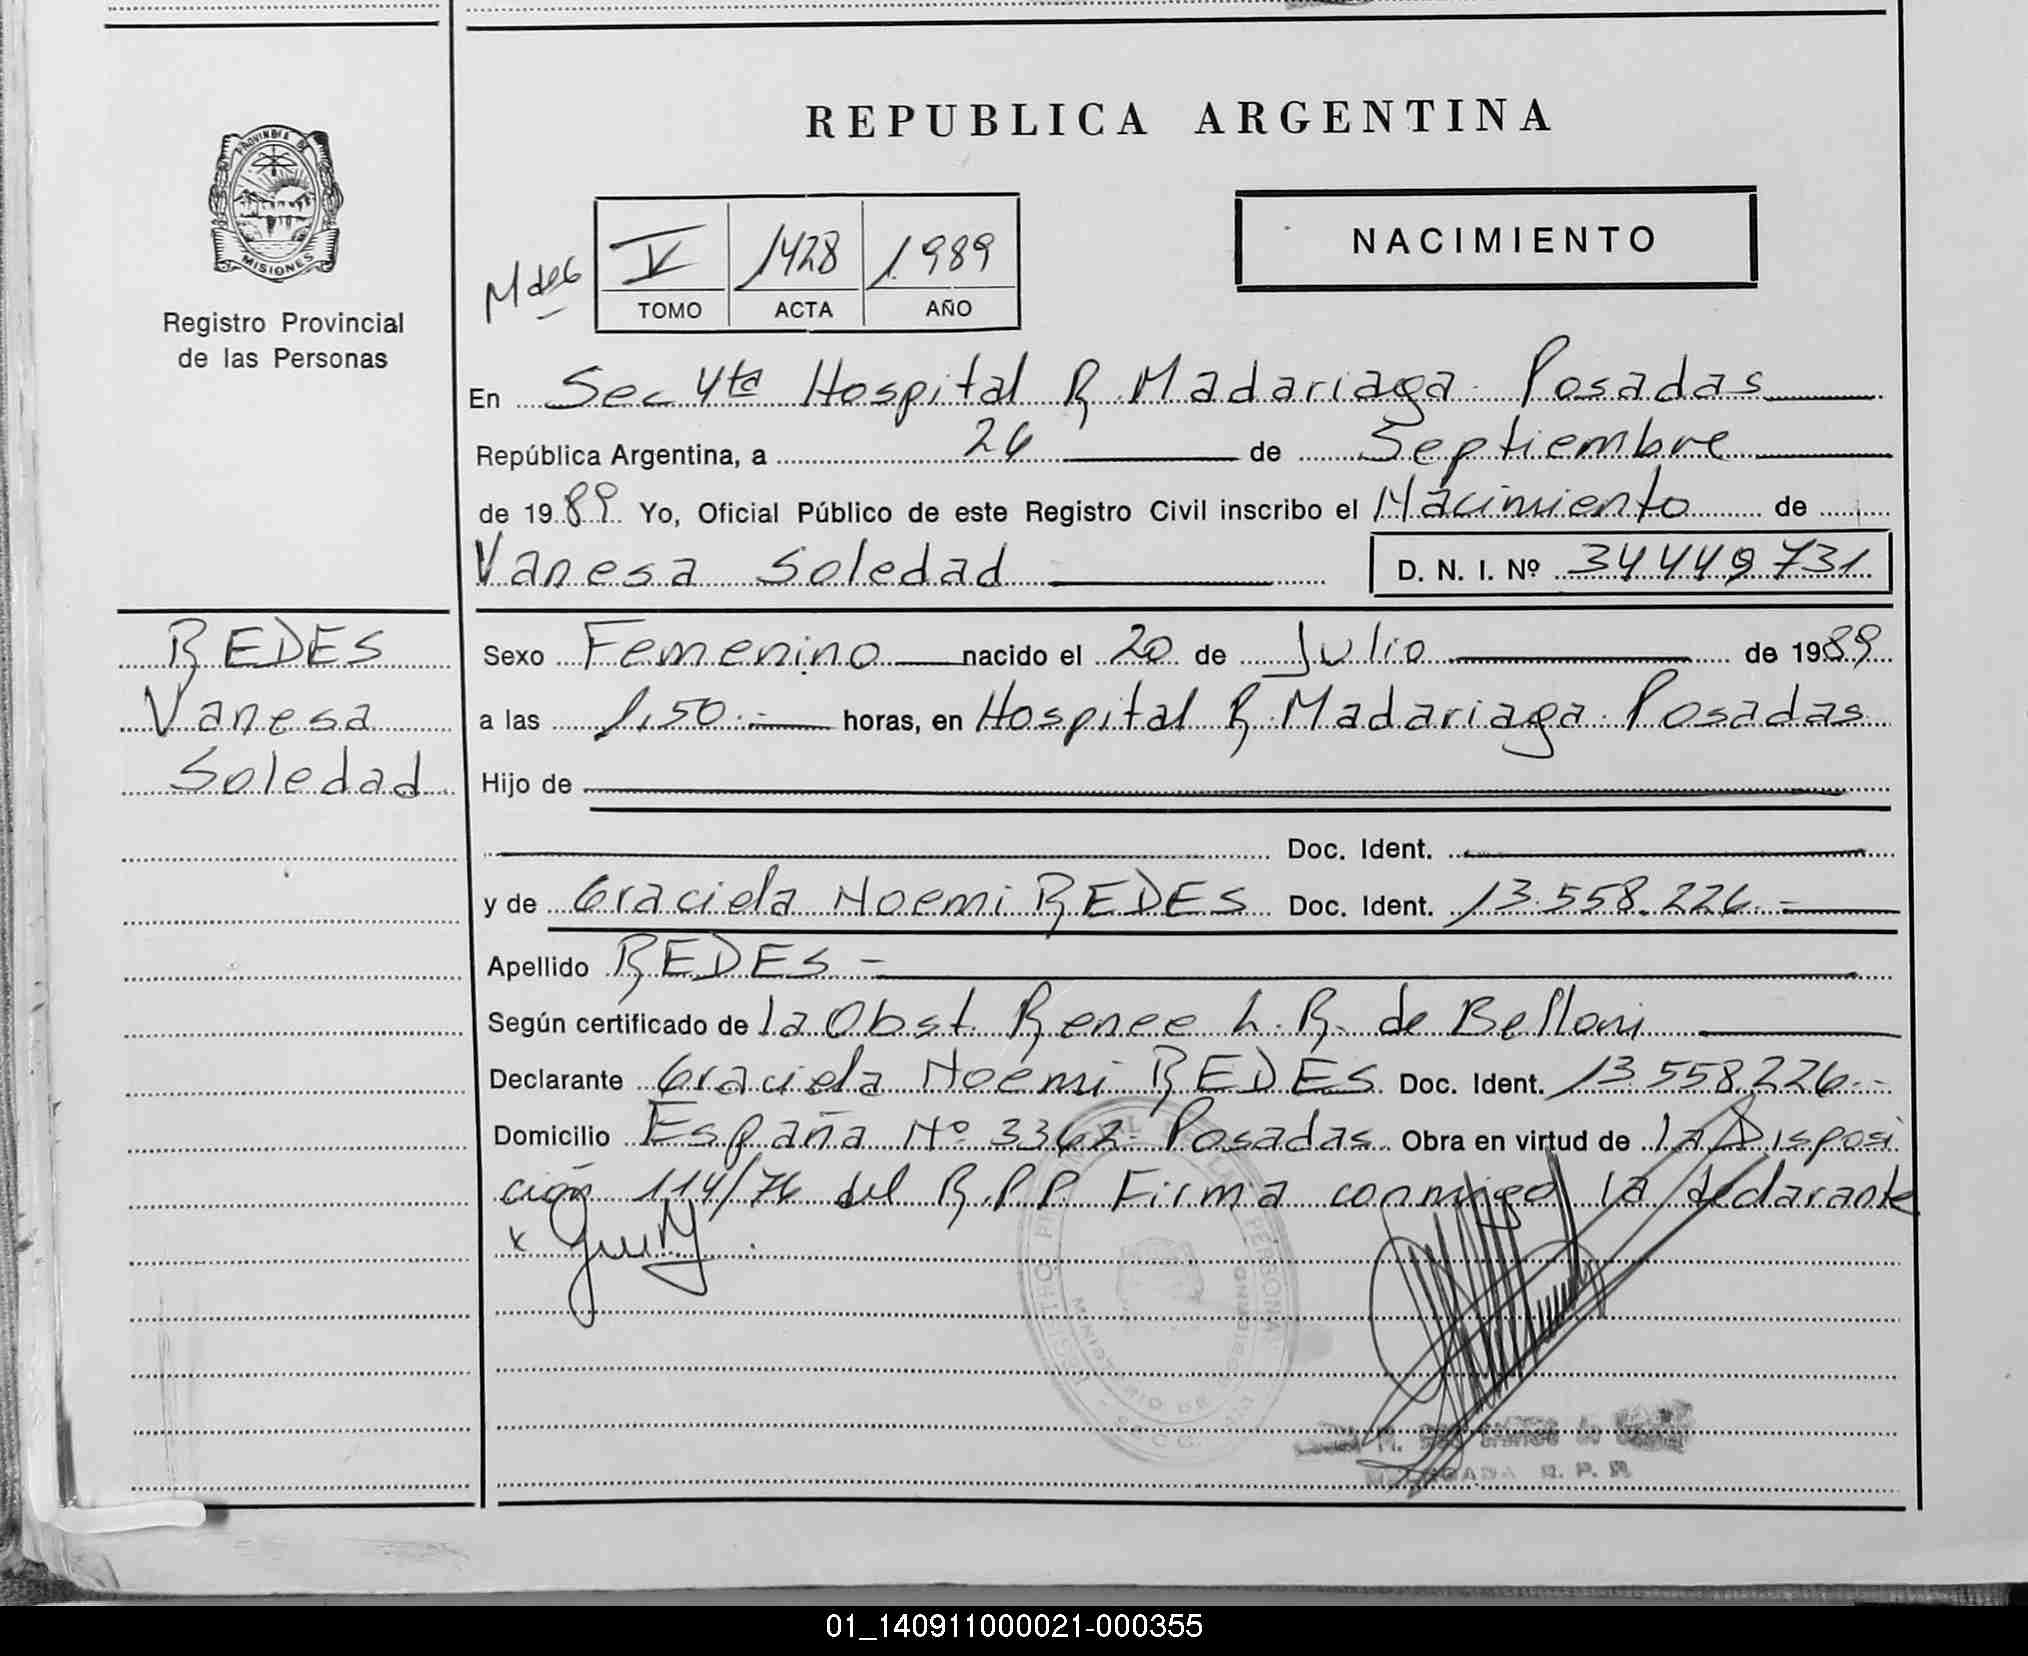 REPUBLICA ARGENTINA
PROVINCIA DE
MISIONES
Registro Provincial
de las Personas
NACIMIENTO
V 1428 1989
TOMO ACTA AÑO
En Sec 4ta Hospital R Madariaga Posadas
República Argentina, a 26 de Septiembre
de 1989 Yo, Oficial Público de este Registro Civil inscribo el Nacimiento de
Vanesa Soledad D. N. I. Nº 34449731
REDES
Vanesa
Soledad
Sexo Femenino nacido el 20 de Julio de 1989
a las 1,50.- horas, en Hospital R. Madariaga Posadas
Hijo de
Doc. Ident.
y de Graciela Noemi REDES Doc. Ident. 13.558.226.-
Apellido REDES -
Según certificado de la Obst. Renee L. R. de Belloni
Declarante Graciela Noemi REDES Doc. Ident. 13.558.226.-
Domicilio España Nº 3362- Posadas Obra en virtud de la Disposi
ción 114/76 del R.P.P. Firma conmigo la declarante
x
REGISTRO PROVINCIAL DE LAS PERSONAS
MINISTERIO DE GOBIERNO
R. P. P.
01_140911000021-000355